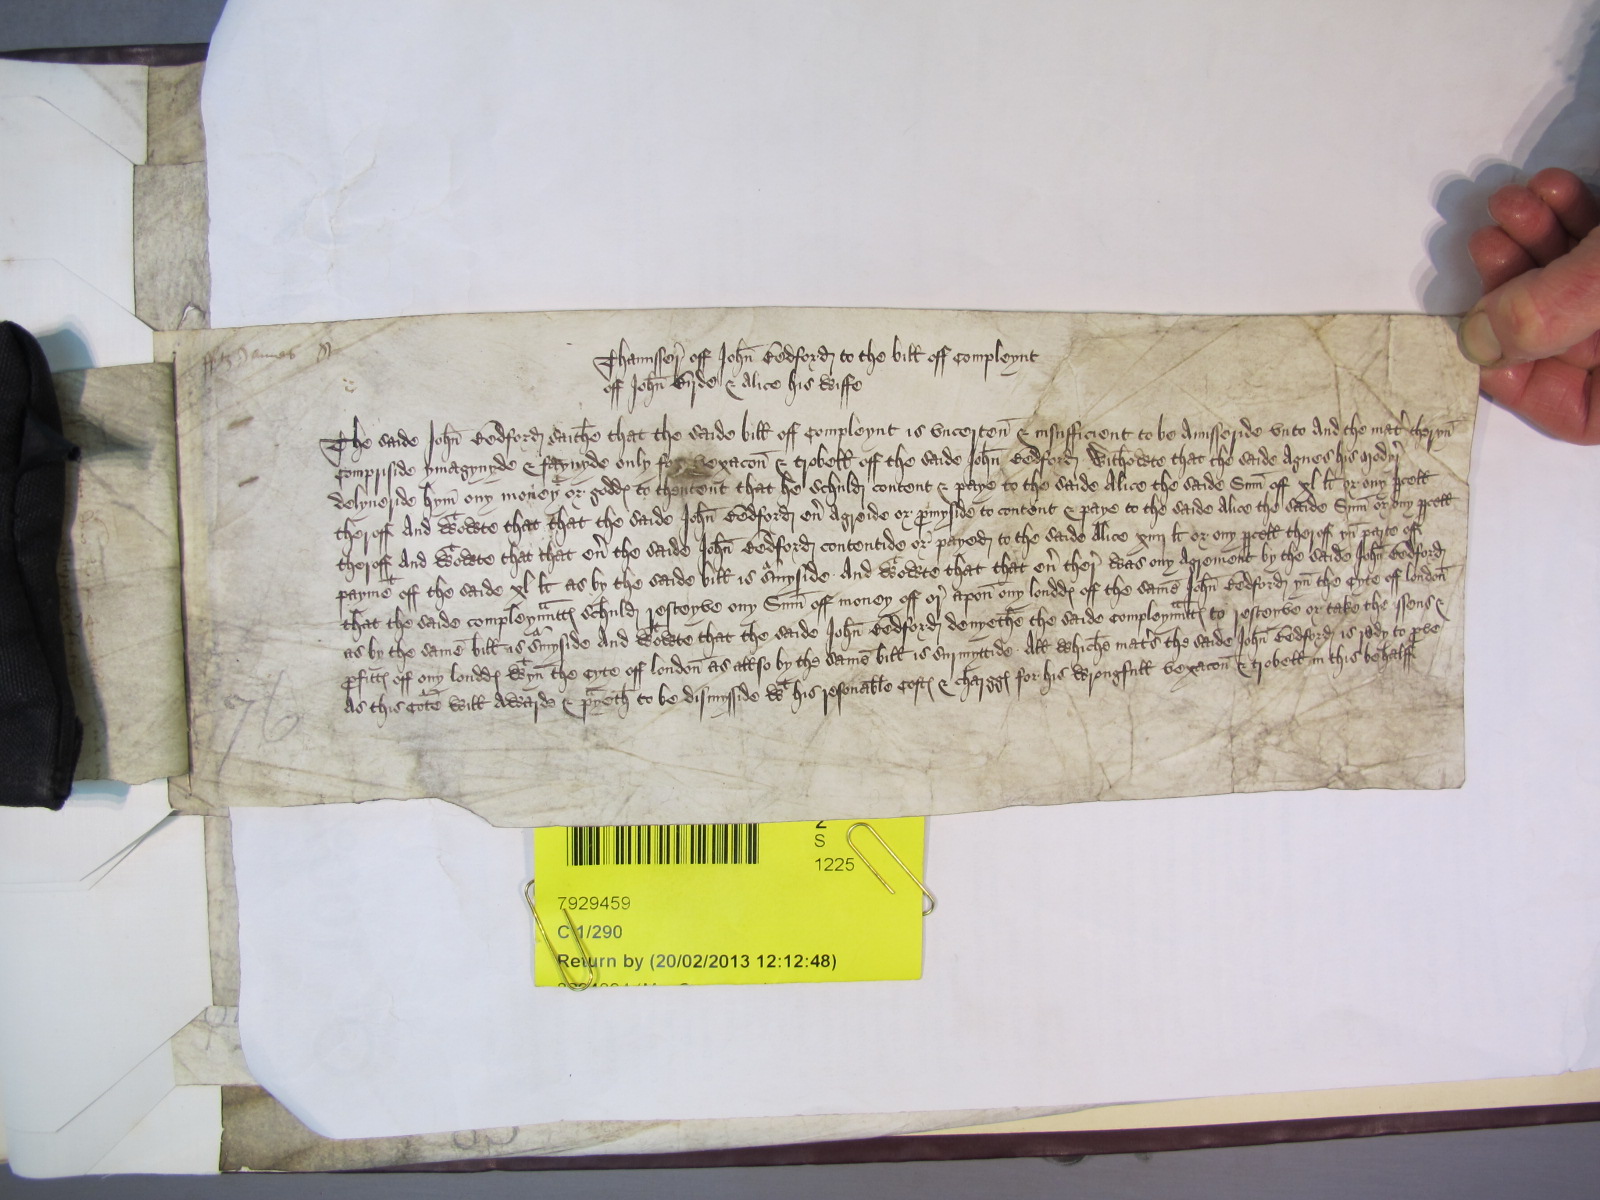 ffitzJames
Thaunsser off John Bedford to the bill off compleynt
off John Birde & Alice his wiffe
The saide John Bedford saithe that the saide bill off compleynt is uncerten & insufficient to be Aunsseride unto And the mater theryn
compriside ymagynyde & faynyde only for vexacon & trobell off the saide John Bedford Withowte that the saide Agnes his moder
delyueride hym ony money or godds to thentent that he schuld content & paye to the saide Alice the saide Sum off xl li or ony pcell
theroff And wtowte that that the saide John Bedford eu Agreide or pmyside to content & paye to the saide Alice the saide Sum or ony pcell
theroff And wtowte that that eu the saide John Bedford contentide or payed to the saide Alice xiiij li or ony pcell theroff yn parte off
paymet off the saide xl li as by the saide bill is surmyside And wtowte that that eu ther was ony Agrement by the saide John Bedford
that the saide compleynantts schuld resceyve ony Sum off money off or apon ony londds off the same John Bedford yn the Cyte off london
as by the same bill is surmyside And wtowte that the saide John Bedford denyethe the saide compleynantts to resceyve or take the issues &
pfitts off ony londds wtyn the Cyte off london as allso by the same bill is surmyttide All whiche maters the saide John Bedford is redy to pve
As this Corte will Awarde & prayeth to be dismysside wt his resonable Costs & chargges for his wrongfull vexacon & trobell in this behalff
76
2
S
1225
7929459
C 1/290
Return by (20/02/2013 12:12:48)